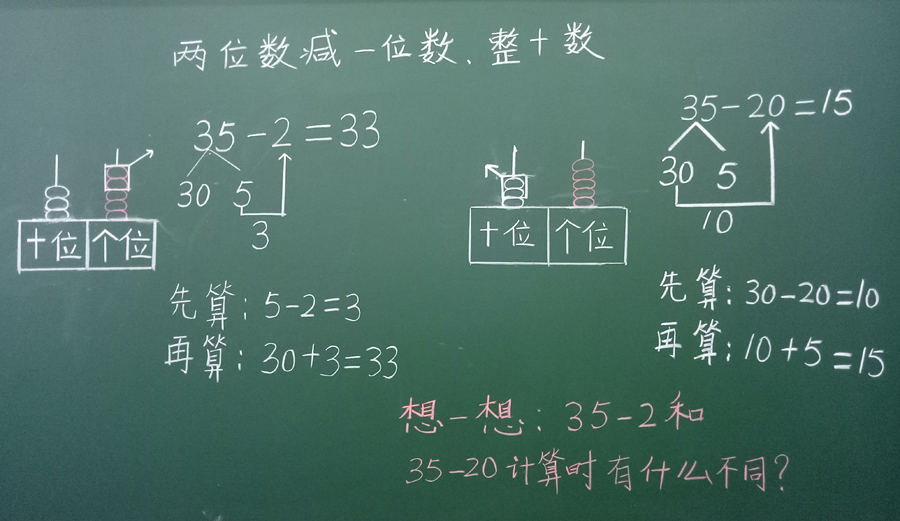 两位数减一位数、整十数
35-2=33
30 5
3
十位 个位
先算：5-2=3
再算：30+3=33
35-20=15
30 5
10
十位 个位
先算：30-20=10
再算：10+5=15
想一想：35-2和
35-20计算时有什么不同？